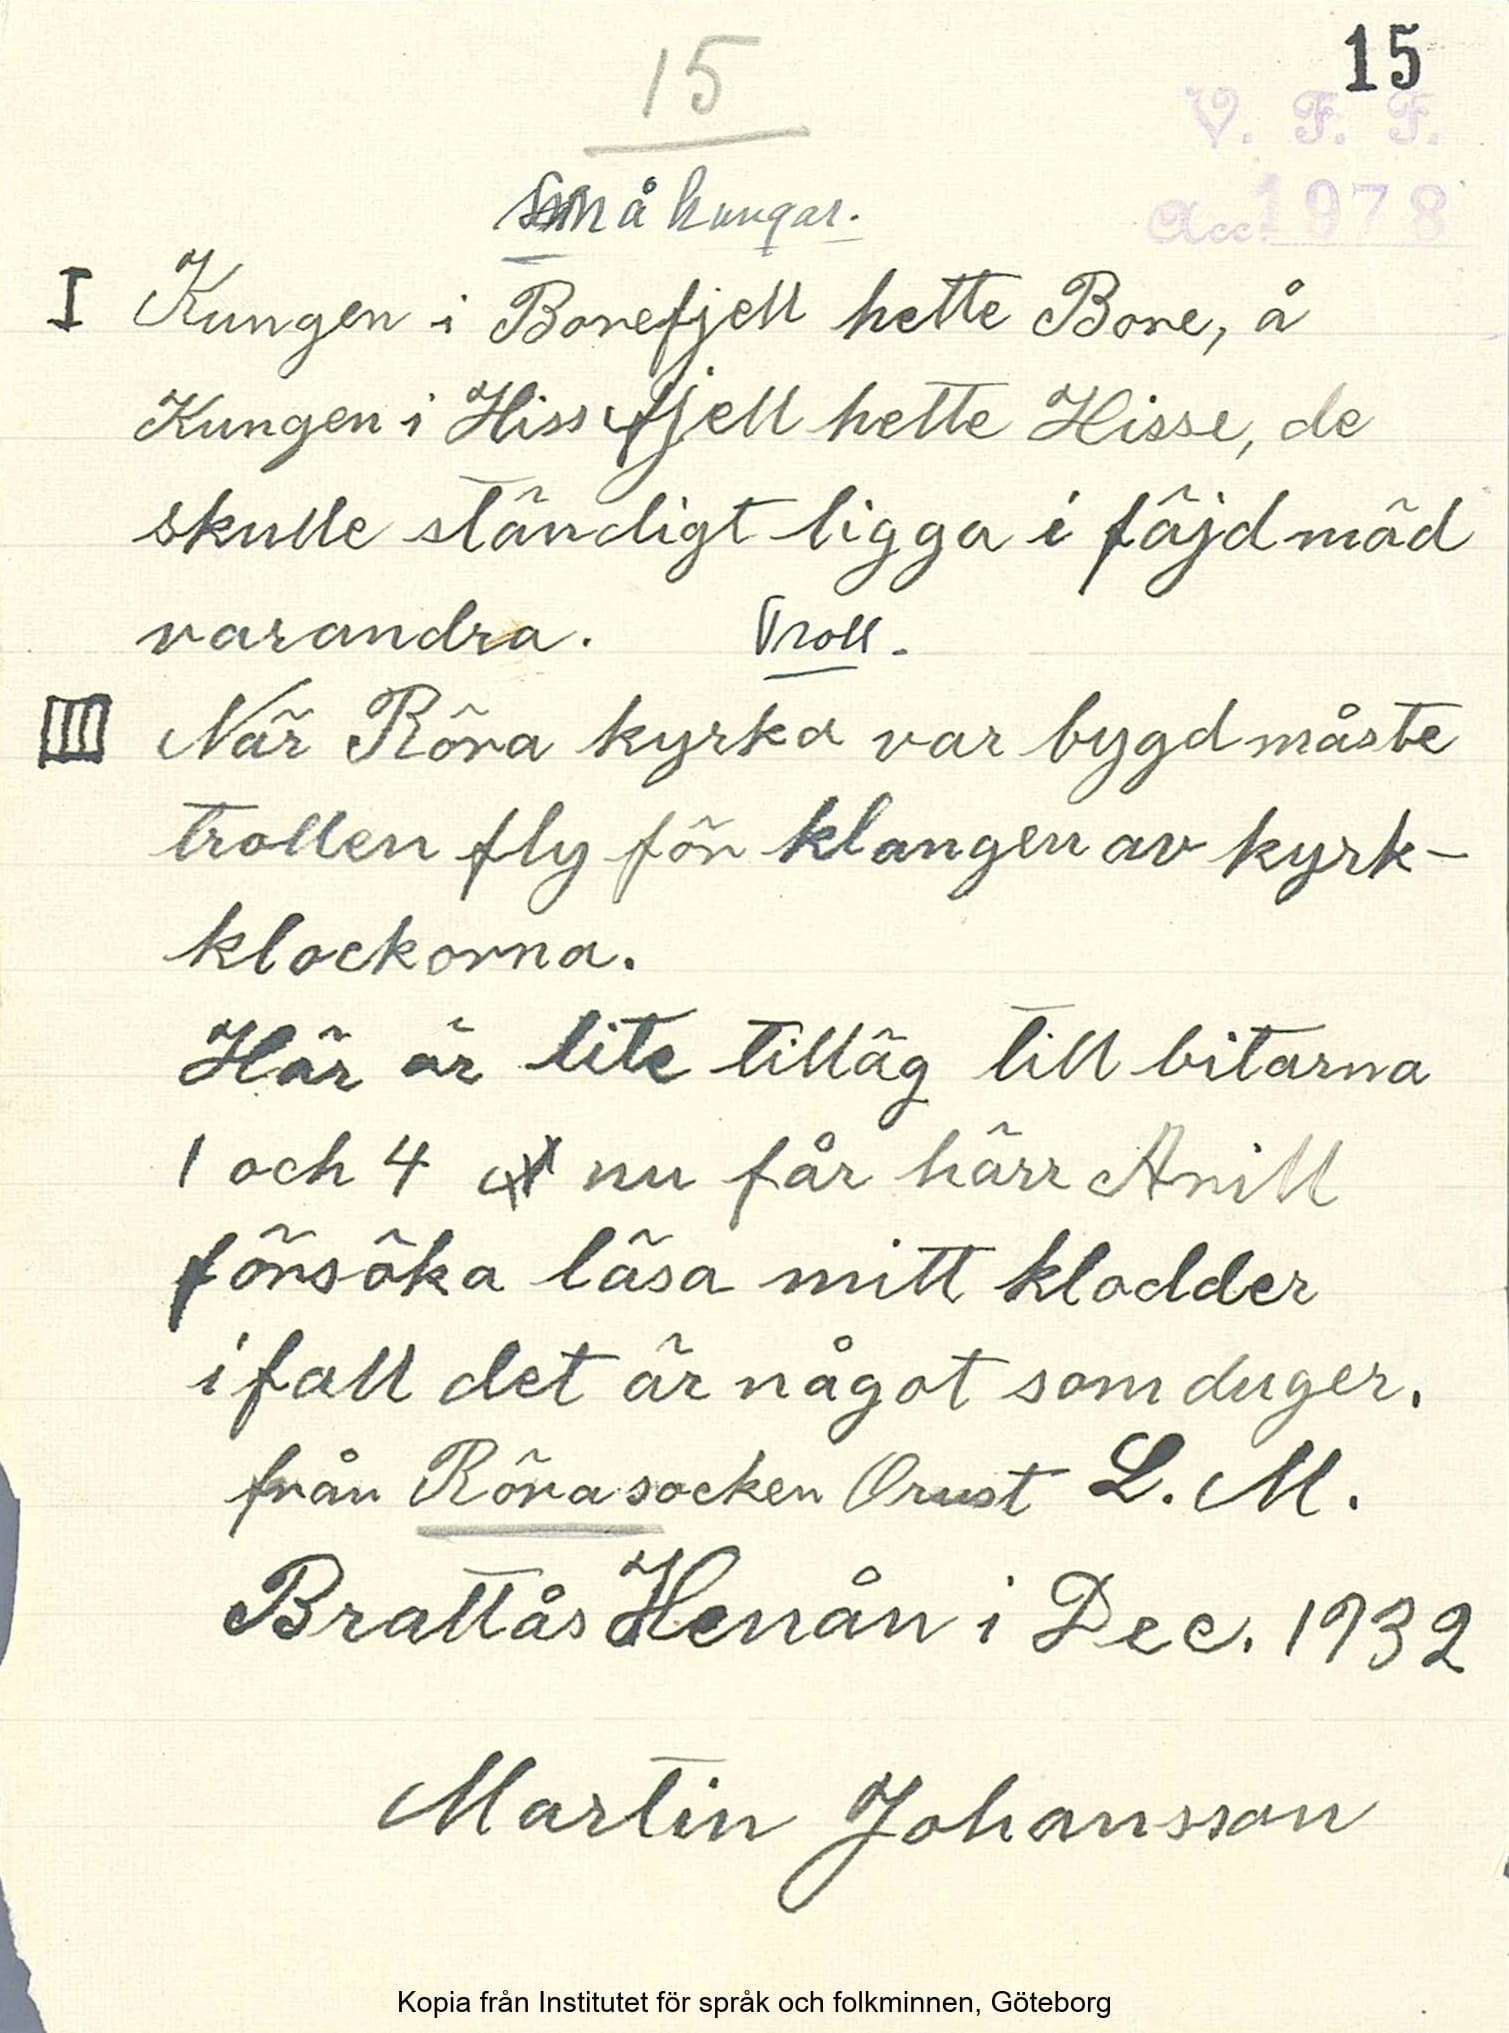 15
15
V. F. F.
Acc. 1978
Småkungar.
I Kungen i Borefjell hette Bore, å
Kungen i Hissefjell hette Hisse, de
skulle ständigt ligga i fäjd mäd
varandra. Troll.
III När Röra kyrka var bygd måste
trollen fly för klangen av kyrk-
klockorna.
Här är lite tilläg till bitarna
1 och 4 nu får härr Arill
försöka läsa mitt klodder
ifall det är något som duger.
från Röra socken Orust L. M.
Brattås Henån i Dec. 1932
Martin Johansson
Kopia från Institutet för språk och folkminnen, Göteborg